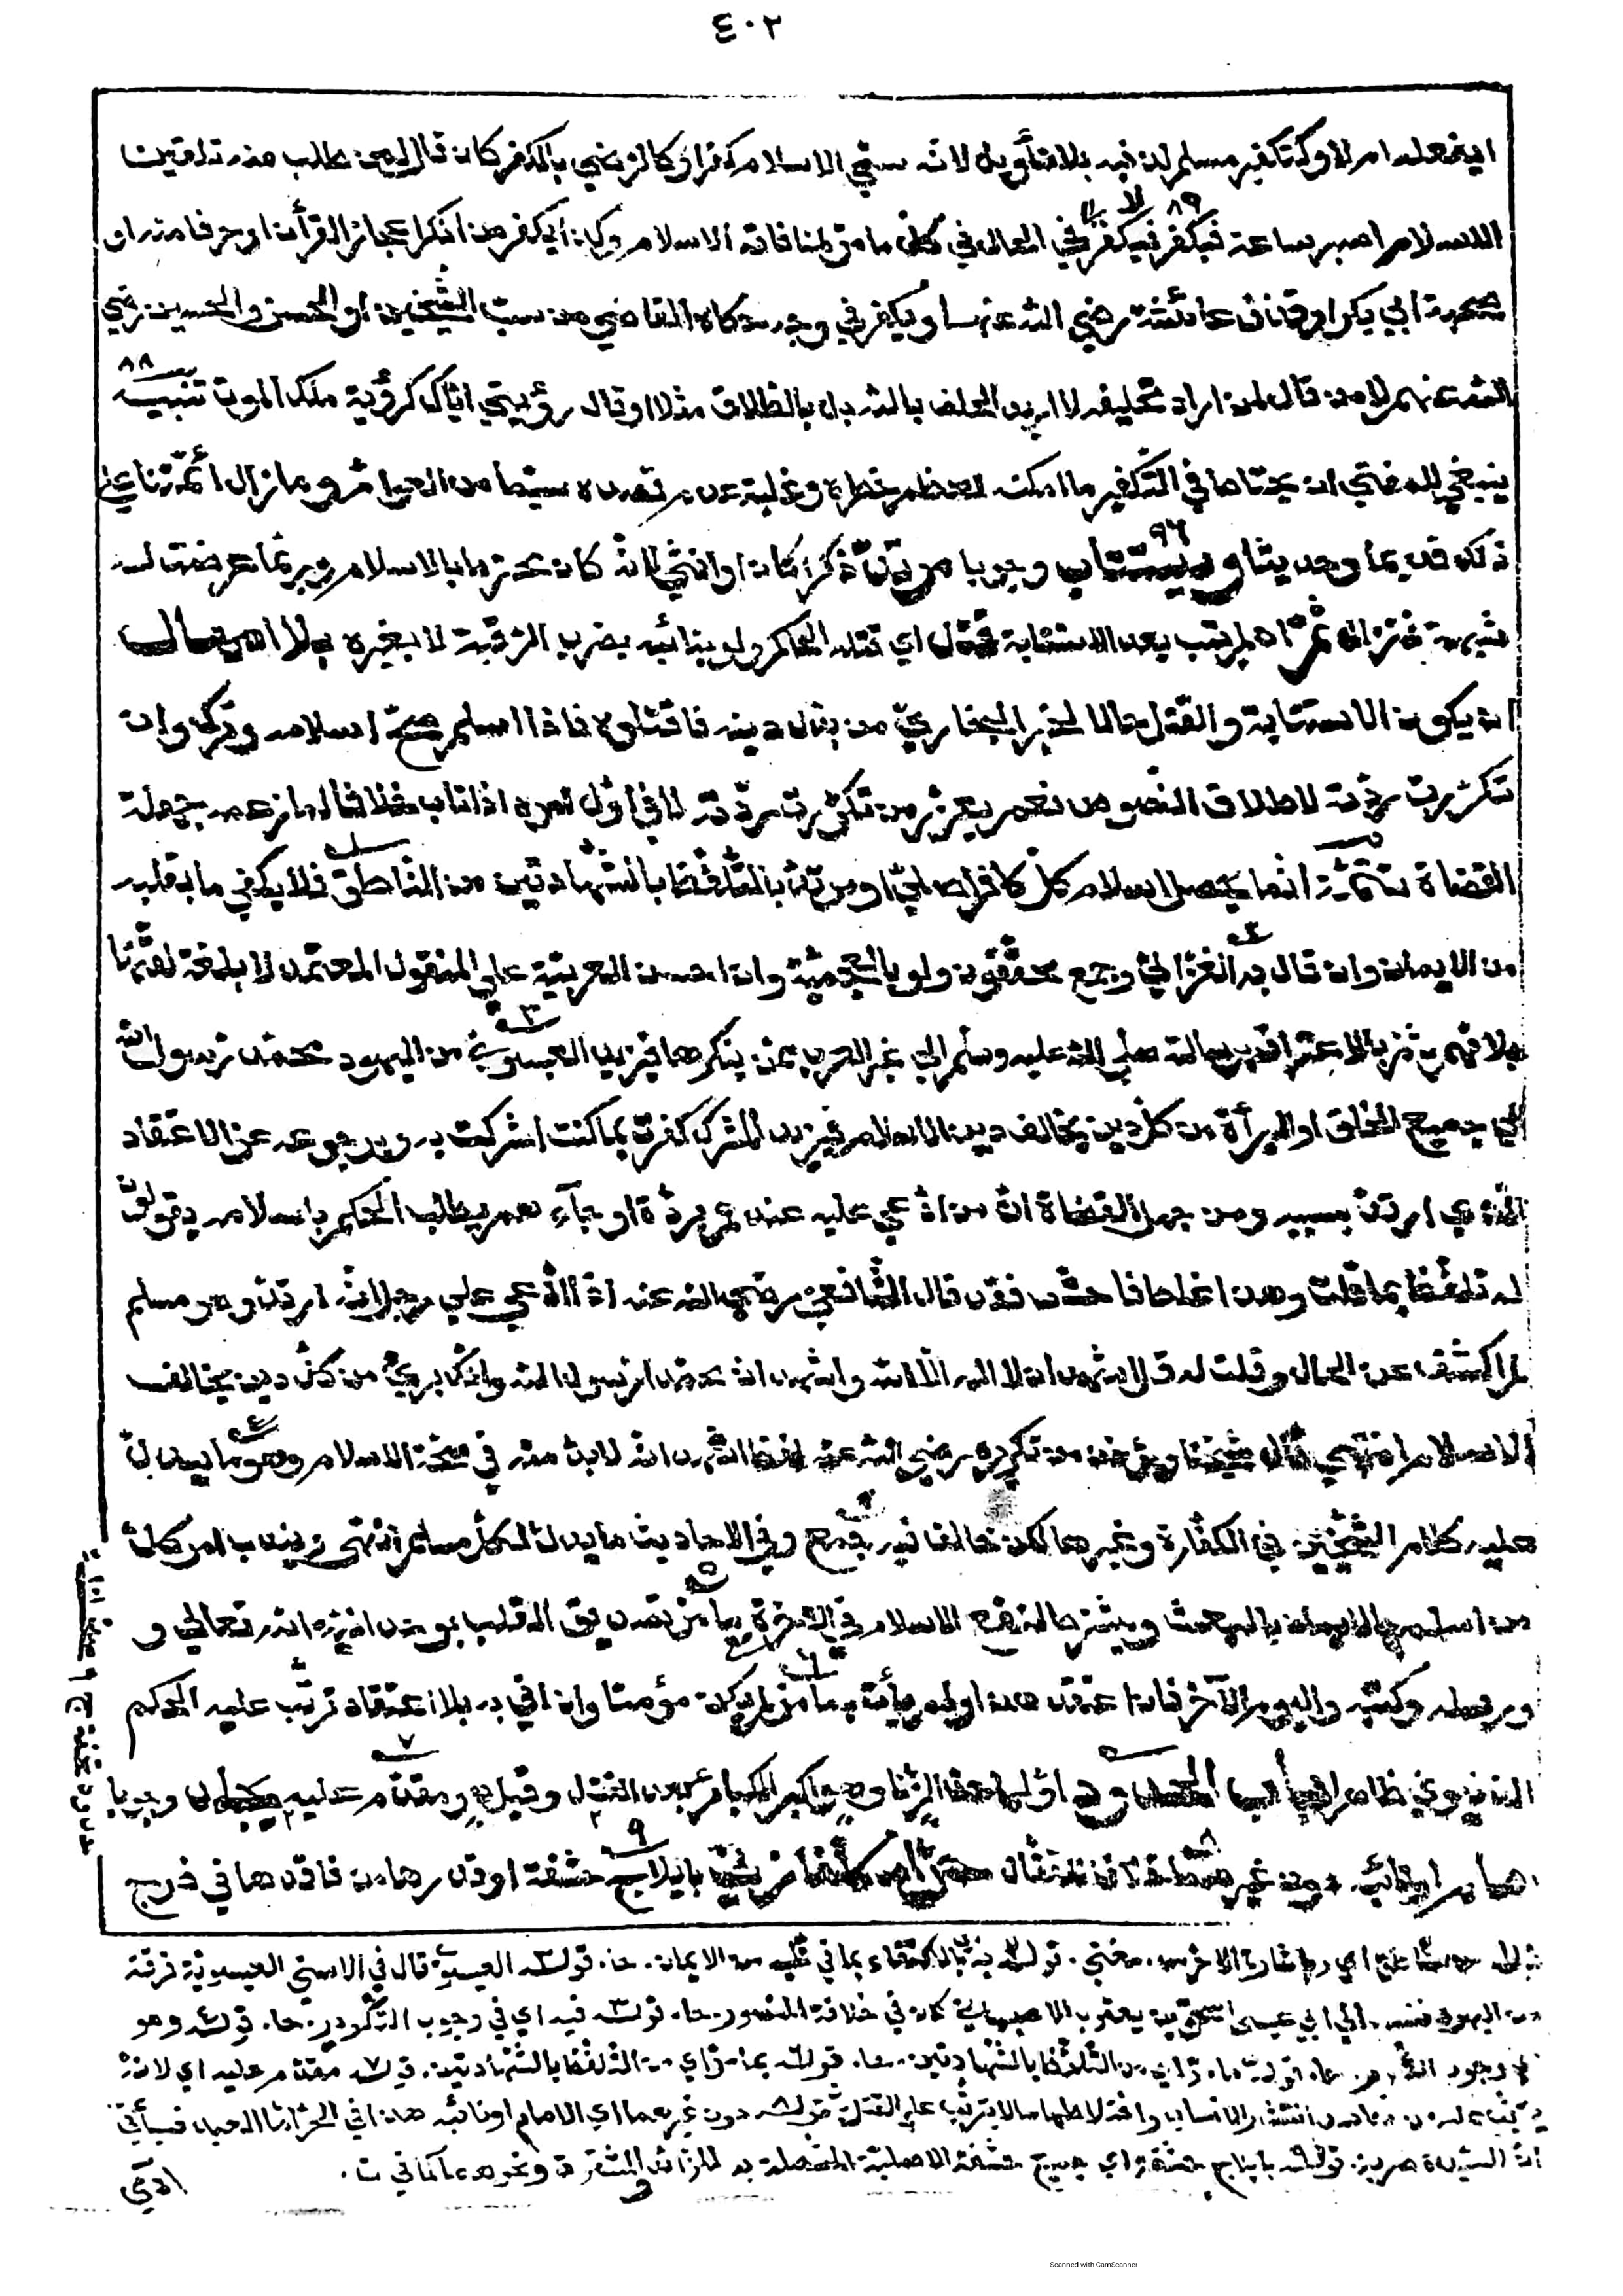 ٤٠٢
او يفعله امر لا وكتكفير مسلم لذنبه بلا تأويل لانه سمي الاسلام كفرا وكالرضى بالكفر كان قال لمن طلب منه تلقين
الاسلام اصبر ساعة فيكفر في الحال في كل ما مر لمنافاته الاسلام وكذا يكفر من انكر اعجاز القرأن او حرفا منه او
صحبة ابي بكر او قذف عائشة رضي الله عنها ويكفر في وجه حكاه القاضي من سب الشيخين او الحسن والحسين رضي
الله عنهم لا من قال لمن اراد تحليفه لا اريد الحلف بالله بل بالطلاق مثلا او قال رؤيتي اياك كرؤية ملك الموت تنبيه
ينبغي للمفتي ان يحتاط في التكفير ما امكنه لعظم خطره وغلبة عدم قصده سيما من العوام وما زال أئمتنا على
ذلك قديما وحديثا ويستتاب وجوبا مرتد ذكرا كان او انثى لانه كان محترما بالاسلام وربما عرضت له
شبهة فتزال ثم ان لم يتب بعد الاستتابة قتل اي قتله الحاكم ولو بنائبه بضرب الرقبة لا بغيره بلا امهال
ان يكون الاستتابة والقتل حالا لخبر البخاري من بدل دينه فاقتلوه فاذا اسلم صح اسلامه وترك وان
تكررت ردته لاطلاق النصوص نعم يعزر من تكررت ردته لا في اول مرة اذا تاب خلافا لما زعمه جهلة
القضاة تتمة انما يحصل اسلام كل كافر اصلي او مرتد بالتلفظ بالشهادتين من الناطق فلا يكفي ما بقلبه
من الايمان وان قال به الغزالي وجمع محققون ولو بالعجمية وان احسن العربية على المنقول المعتمد لا بلغة لقنها
بلا فهم ثم بالاعتراف برسالته صلى الله عليه وسلم الى غير العرب ممن ينكرها فيزيد العيسوي من اليهود محمد رسول الله
الى جميع الخلق او البرأة من كل دين يخالف دين الاسلام فيزيد المشرك كفرت بما كنت اشركت به وبرجوعه عن الاعتقاد
الذي ارتد بسببه ومن جهل القضاة ان من ادعي عليه عندهم بردة او جاءهم يطلب الحكم باسلامه يقولون
له تلفظ بما قلت وهذا غلط فاحش فقد قال الشافعي رضي الله عنه اذا ادعي على رجل انه ارتد وهو مسلم
لم اكشف عن الحال وقلت له قل اشهد ان لا اله الا الله واشهد ان محمدا رسول الله وانك بريء من كل دين يخالف
الاسلام انتهى قال شيخنا ويؤخذ من تكريره رضي الله عنه لفظ اشهد انه لا بد منه في صحة الاسلام وهو ما يدل
عليه كلام الشيخين في الكفارة وغيرها لكن خالف فيه جمع وفي الاحاديث ما يدل لكل مسلم انتهى ويندب امر كل
من اسلم بالايمان بالبعث ويشترط لنفع الاسلام في الاخرة مع ما مر تصديق القلب بوحدانية الله تعالى و
ورسله وكتبه واليوم الآخر فان اعتقد هذا ولم يأت بما مر لم يكن مؤمنا وان اتي به بلا اعتقاد ترتب عليه الحكم
الدنيوي ظاهرا باب الحدود اولها حد الزنا وهو اكبر الكبائر بعد القتل وقيل هو مقدم عليه يجلد وجوبا
امام او نائبه دون غيرهما خلافا للقفال حرا مكلفا زنى بايلاج حشفة او قدرها من فاقدها في فرج
قوله به بالاكتفاء بما في قلبه من الايمان. حا. قوله العيسوي قال في الاسنى العيسوية فرقة
من اليهود تنسب الى ابي عيسى اسحق بن يعقوب الاصبهاني كان في خلافة المنصور. حا. قوله فيه اي في وجوب التكرير. حا. قوله وهو
بالتلفظ بالشهادتين. حا. قوله بما مر اي من التلفظ بالشهادتين. قوله مقدم عليه اي لانه
يترتب عليه من مفاسد انتشار الانساب واختلاطها ما لا يترتب على القتل قوله دون غيرهما اي الامام او نائبه هذا في الحر اما العبد فسيأتي
ان السيد قوله بايلاج حشفة اي جميع حشفة الاصلية المتصلة به
ادمي
Scanned with CamScanner